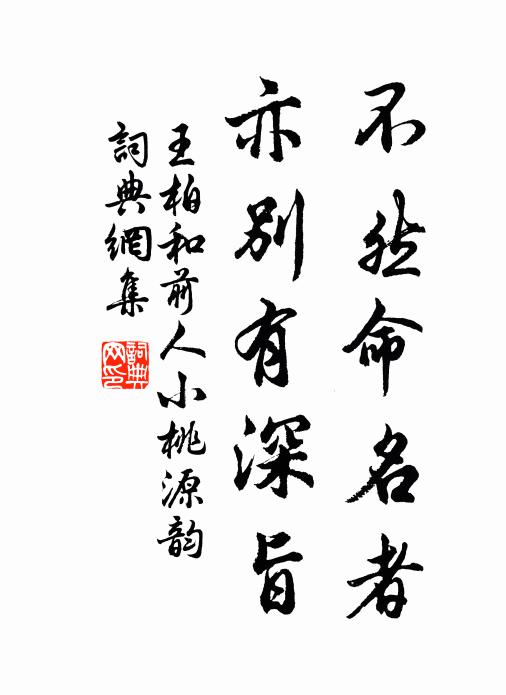 不然命名者
亦別有深旨
王柏和前人小桃源韵
詞典網集
詞典
网印